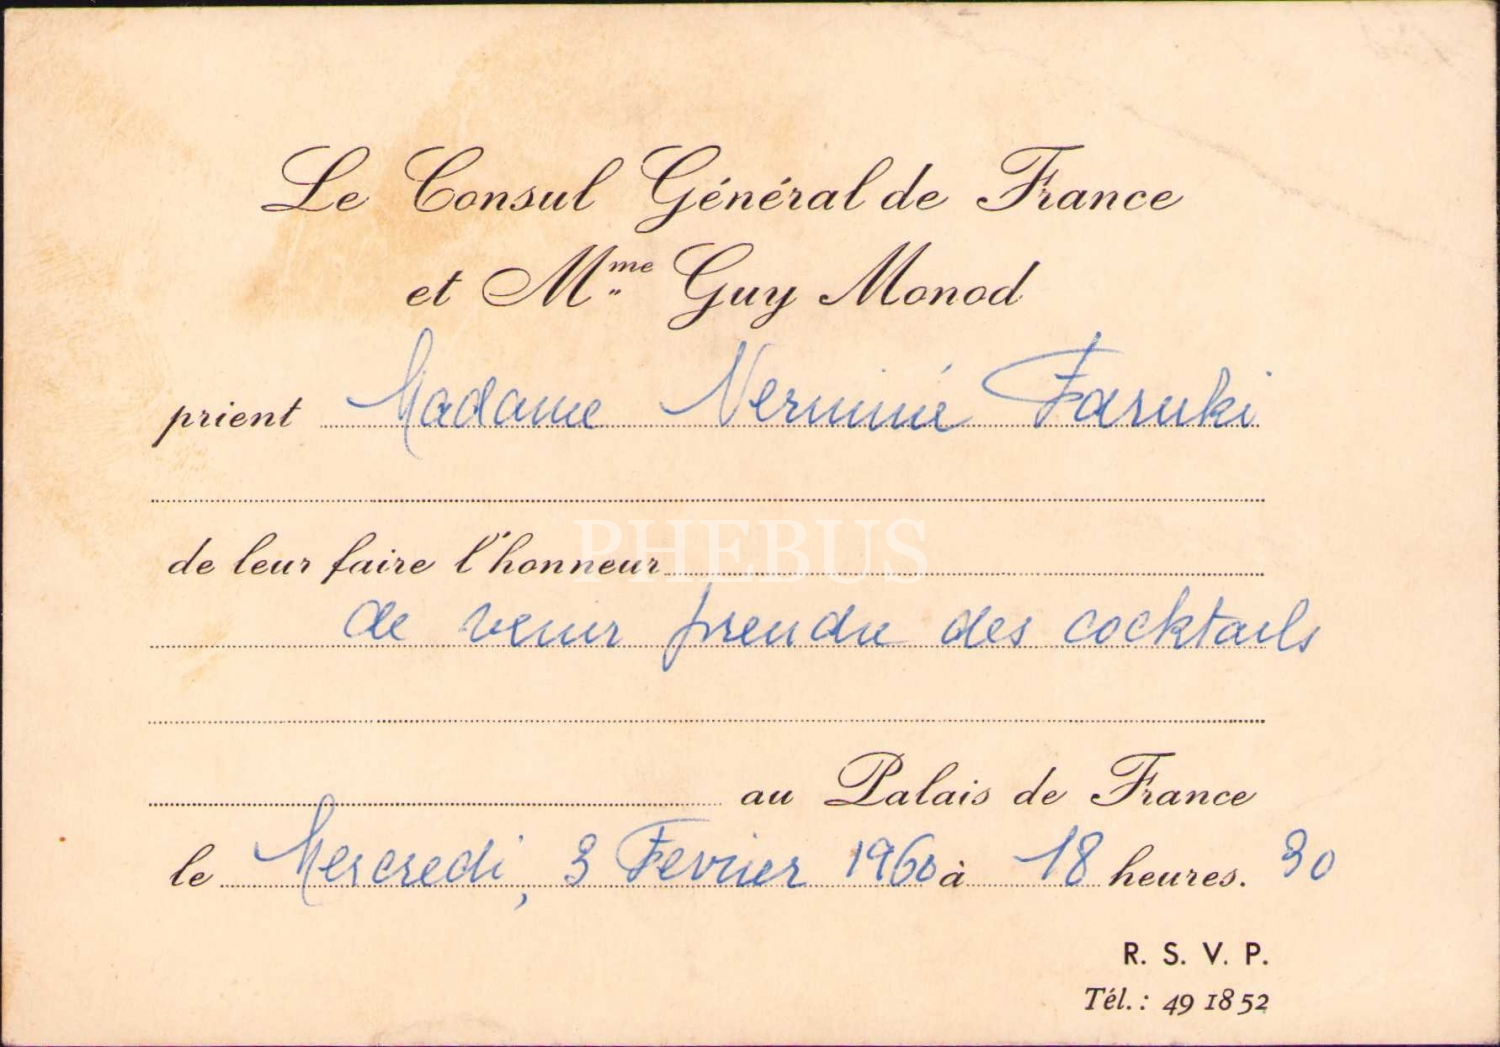 Le Consul Général de France
et Mme Guy Monod
prient Madame Nerminé Faruki
de leur faire l'honneur
PHEBUS
de venir prendre des cocktails
au Palais de France
le Mercredi, 3 Fevrier 1960 à 18 heures. 30
R. S. V. P.
Tél.: 49 18 52